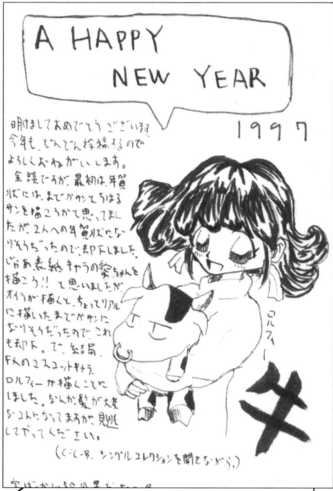 A HAPPY
NEW YEAR
1997
明けましておめでとうございます。
今年も、どんどん投稿するので
よろしくおねがいします。
余談ですが、最初は、年賀
状には、までかサンとちはる
サンを描こうかと思ってまし
たが、2人への年賀状にな
りそうだったので、却下しました。
じゃあ表紙キャラの葵ちゃんを
描こう!!と思いましたが
オイラが描くと、ちょっとリアル
に描いたまでかサンに
なりそうだったのでこれ
も却下。で、結局、
のマスコットキャラ、
ロルフィーか描くことに
しました。なんか髪が大変
なことになってますが、見逃
してやってください。
(C-C-B、シングルコレクションを聞きながら。)
ロルフィー
牛